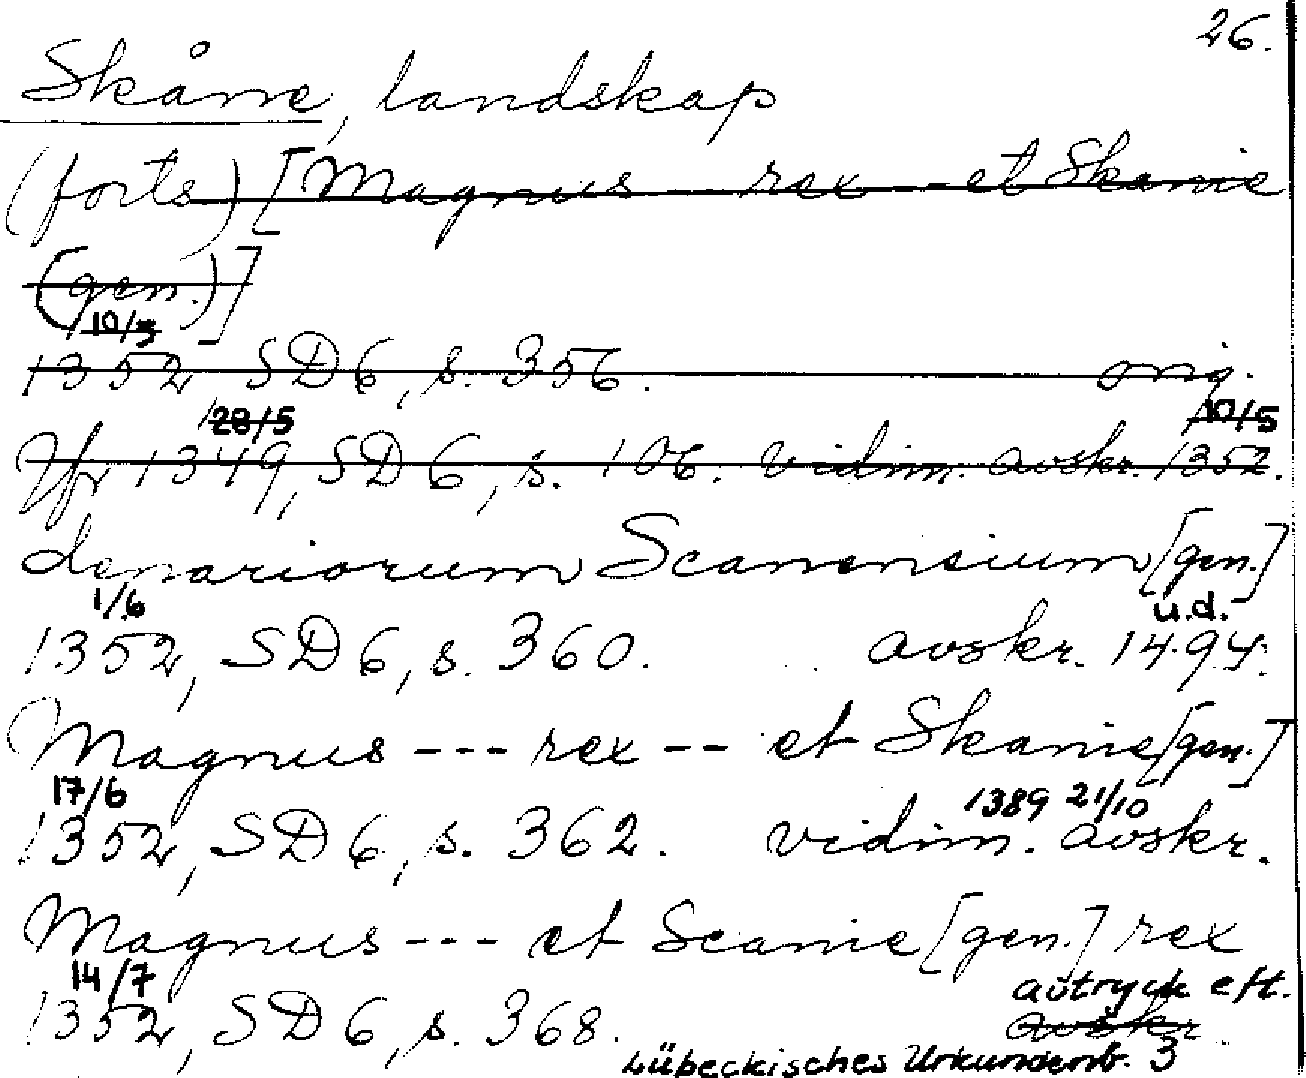 26.
Skåne, landskap
(forts) [Magnus -- rex -- et Skanie
(gen.)]
10/3
1352 SD6, s. 356. orig.
28/5 10/5
Jfr 1349, SD6, s. 106. vidim. avskr. 1352.
denariorum Scanensium [gen.]
1/6 u.d.
1352, SD6, s. 360. avskr. 1494.
Magnus --- rex -- et Skanie [gen.]
17/6 1389 21/10
1352, SD6, s. 362. vidim. avskr.
Magnus --- et Scanie [gen.] rex
14/7 avtryck eft.
1352, SD6, s. 368. avskr
Lübeckisches Urkundenb. 3